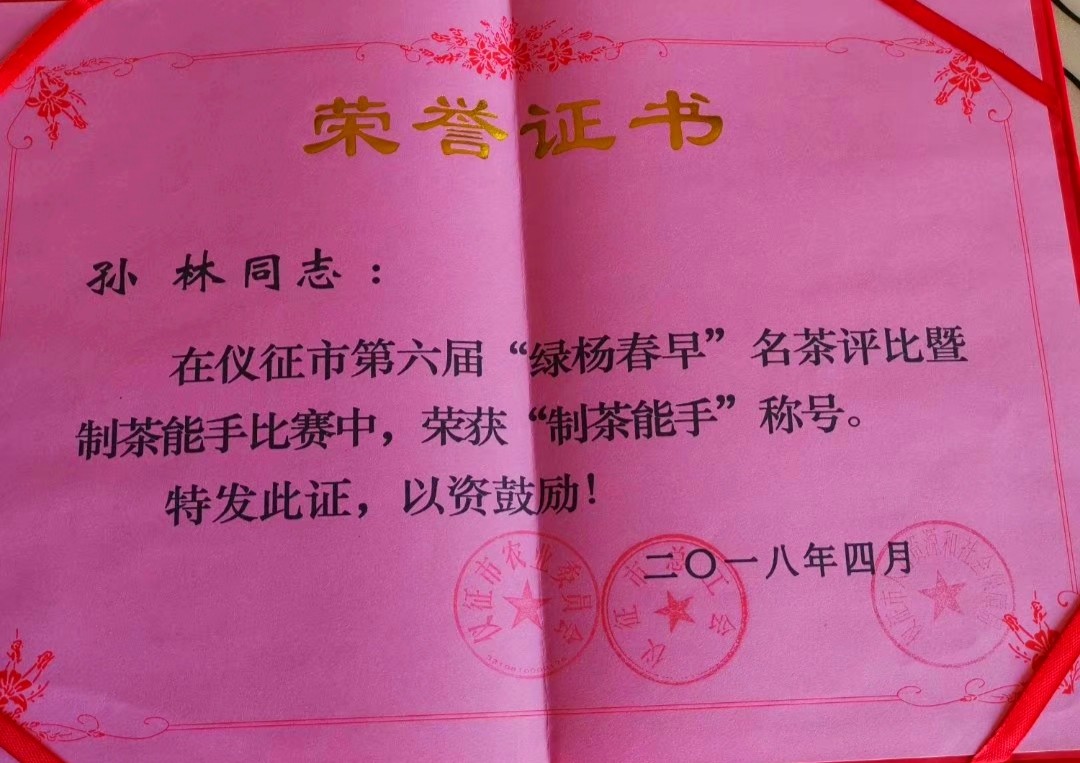 荣誉证书
孙 林同志：
在仪征市第六届“绿杨春早”名茶评比暨
制茶能手比赛中，荣获“制茶能手”称号。
特发此证，以资鼓励！
二〇一八年四月
仪征市农业委员会
仪征市总工会